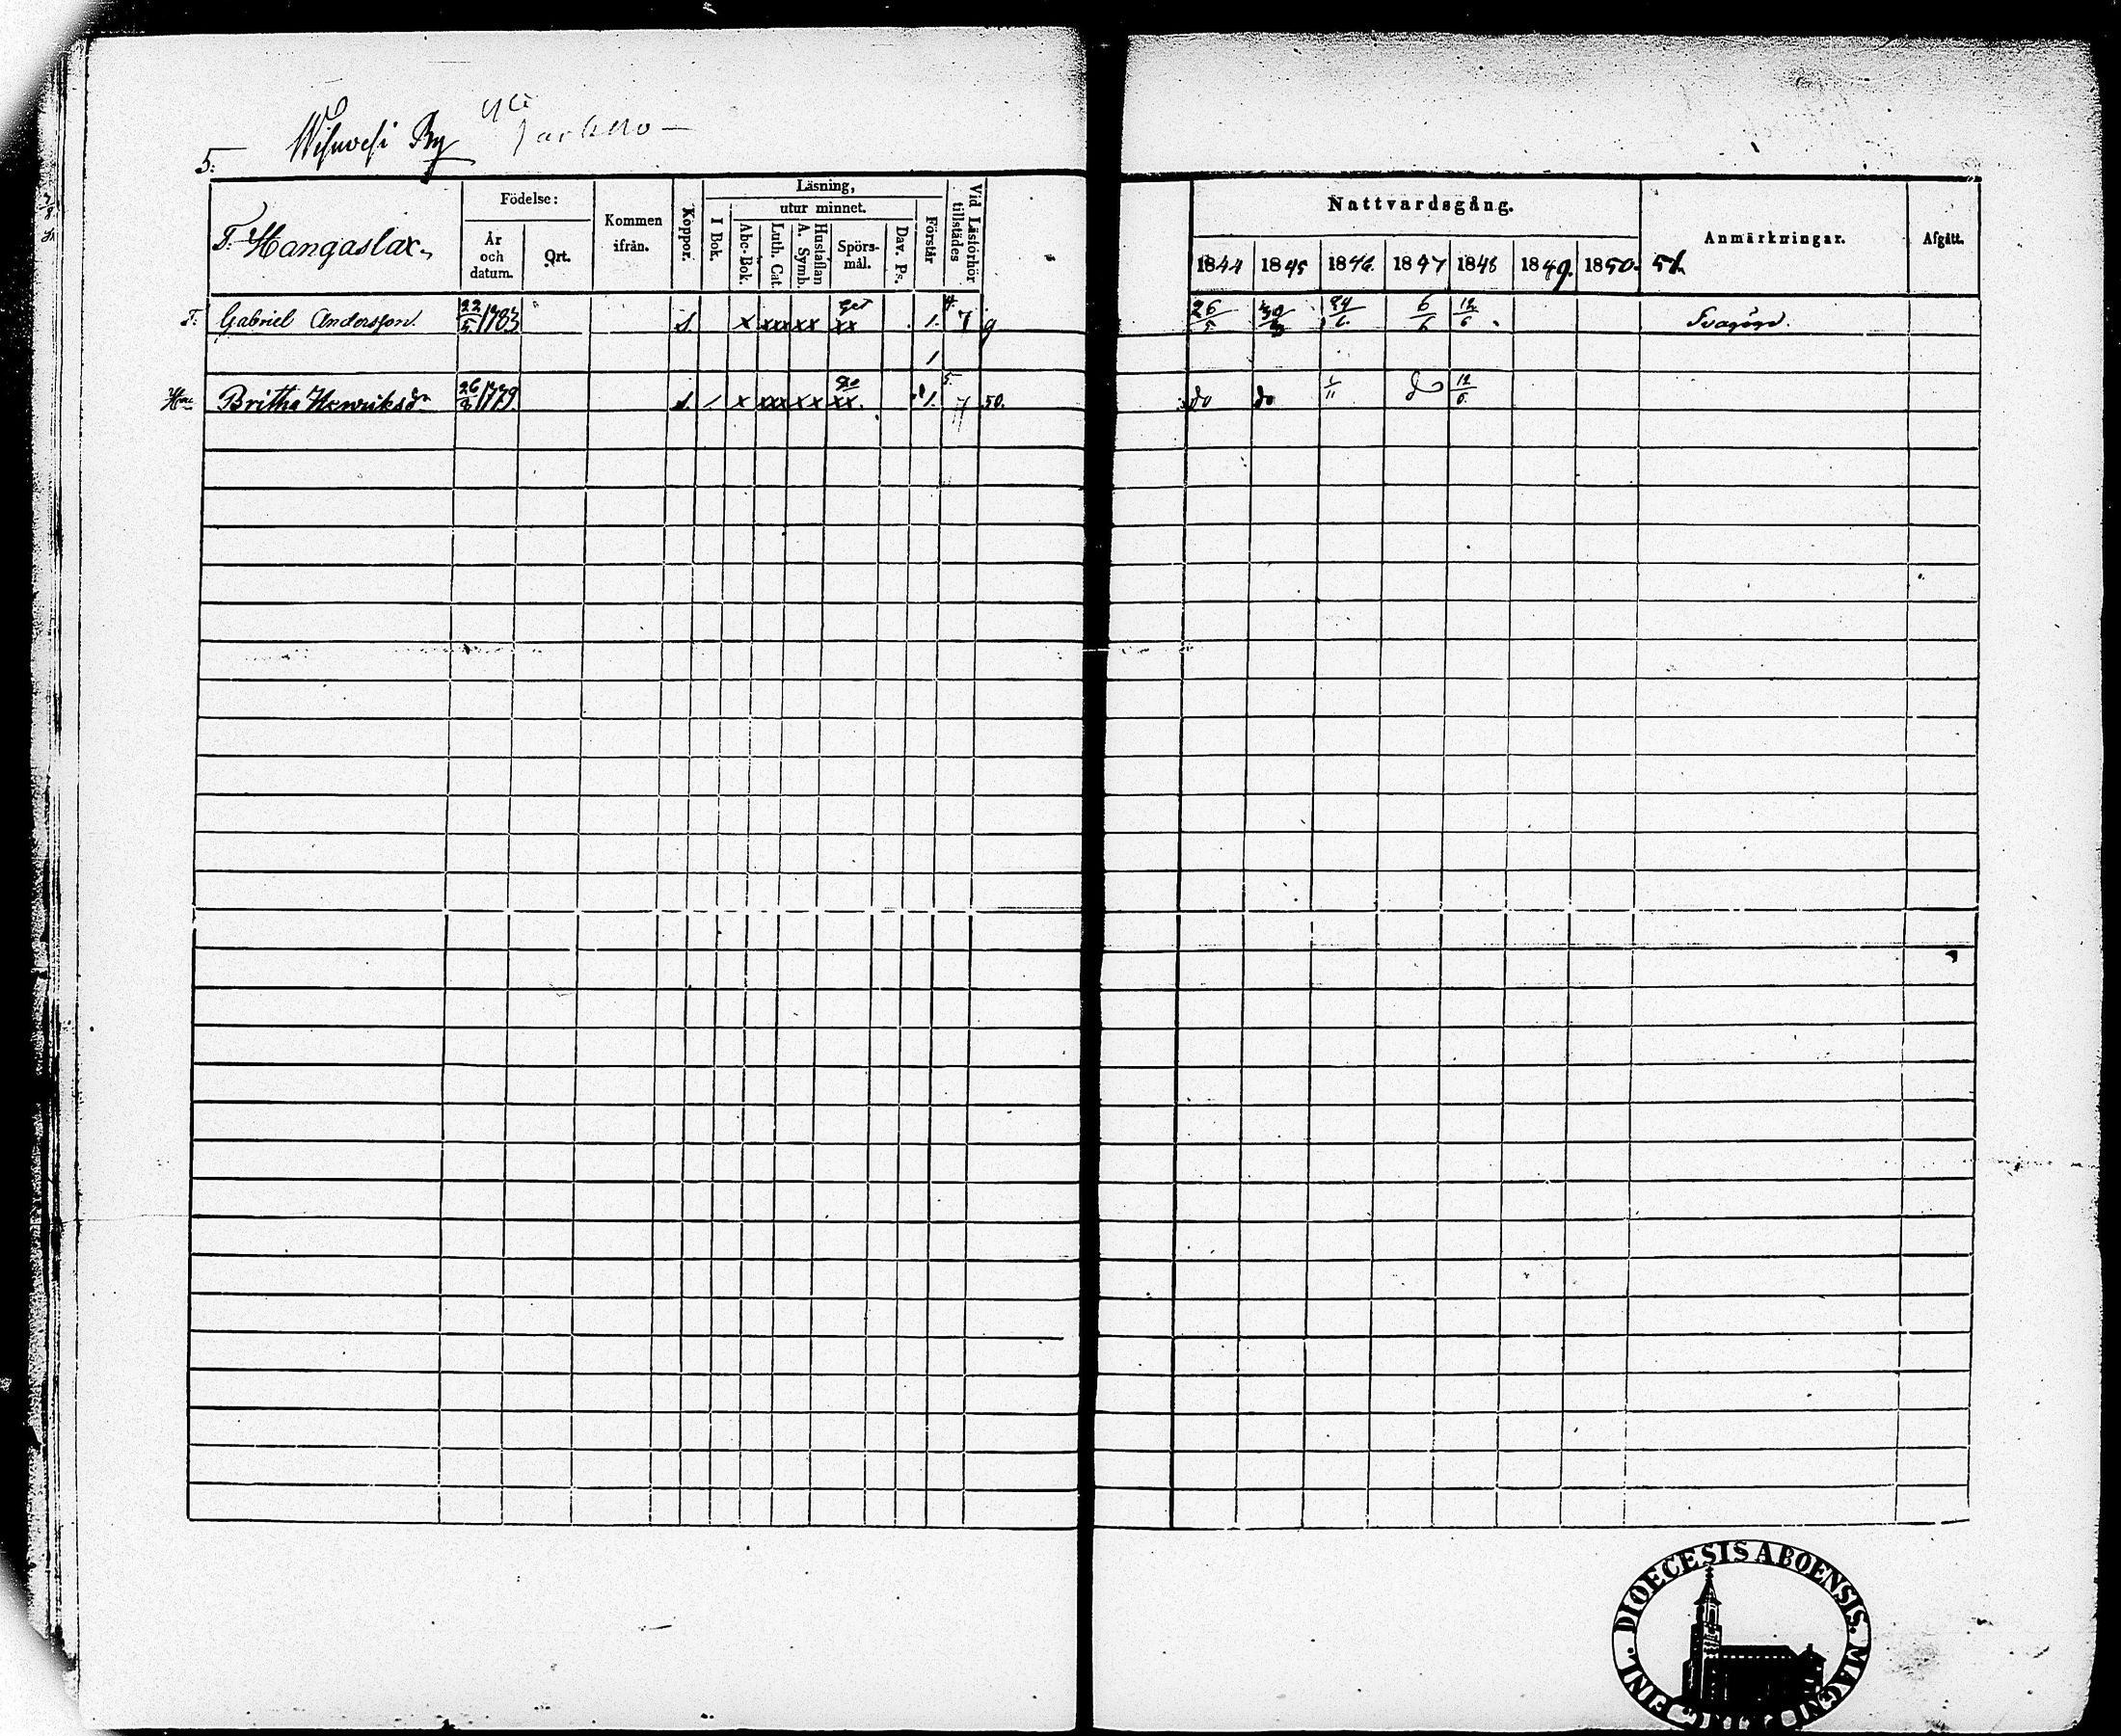 5. Wesuvesi By
T. Hangaslax.
Födelse:
År och datum.
Ort.
Kommen ifrån.
Koppor.
Läsning,
I Bok.
utur minnet.
Abc-Bok.
Luth. Cat.
Hustaflan A. Symb.
Spörs-mål.
Dav. Ps.
Förstår
Vid Läsförhör tillstädes
Nattvardsgång.
1844 1845 1846. 1847 1848 1849. 1850. 51.
Anmärkningar.
Afgått.
T. Gabriel Andersson. 22/5 1783 s. x xxx xx xx 1. 4. 7 9 26/5 24/6 6/6 12/6
1
Britha Henriksdr 26/3 1779. s. x xxx xx xx. 1. 5. 7 50. do do 1/11 do 12/6
DIOECESIS ABOENSIS. MAGNI